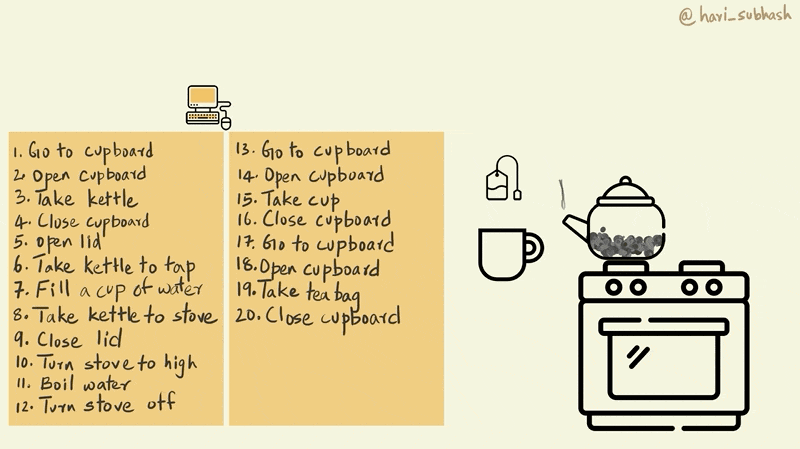 @hari_subhash
1. Go to cupboard
2. Open cupboard
3. Take kettle
4. Close cupboard
5. Open lid
6. Take kettle to tap
7. Fill a cup of water
8. Take kettle to stove
9. Close lid
10. Turn stove to high
11. Boil water
12. Turn stove off
13. Go to cupboard
14. Open cupboard
15. Take cup
16. Close cupboard
17. Go to cupboard
18. Open cupboard
19. Take tea bag
20. Close cupboard